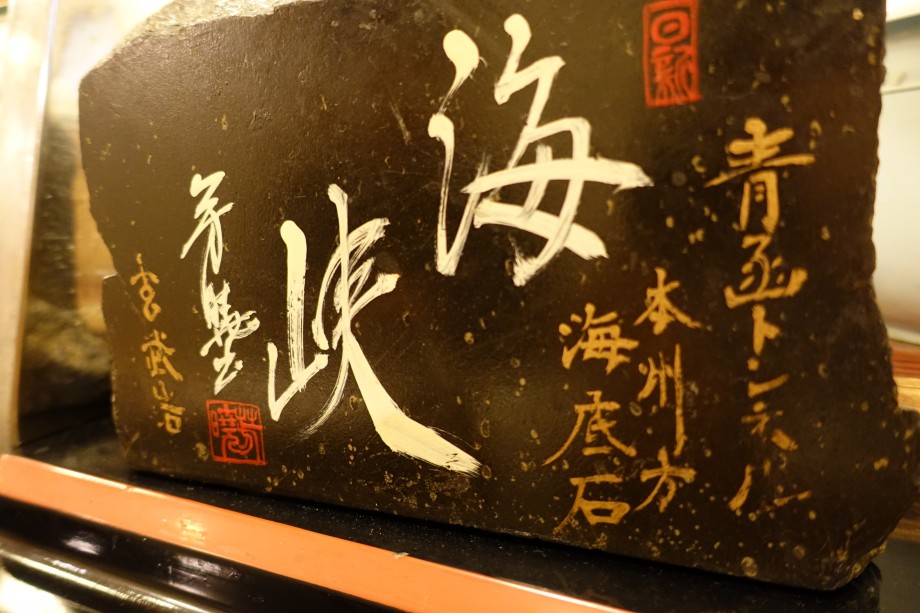 青函トンネル
本州方
海底石
海峡
玄武岩